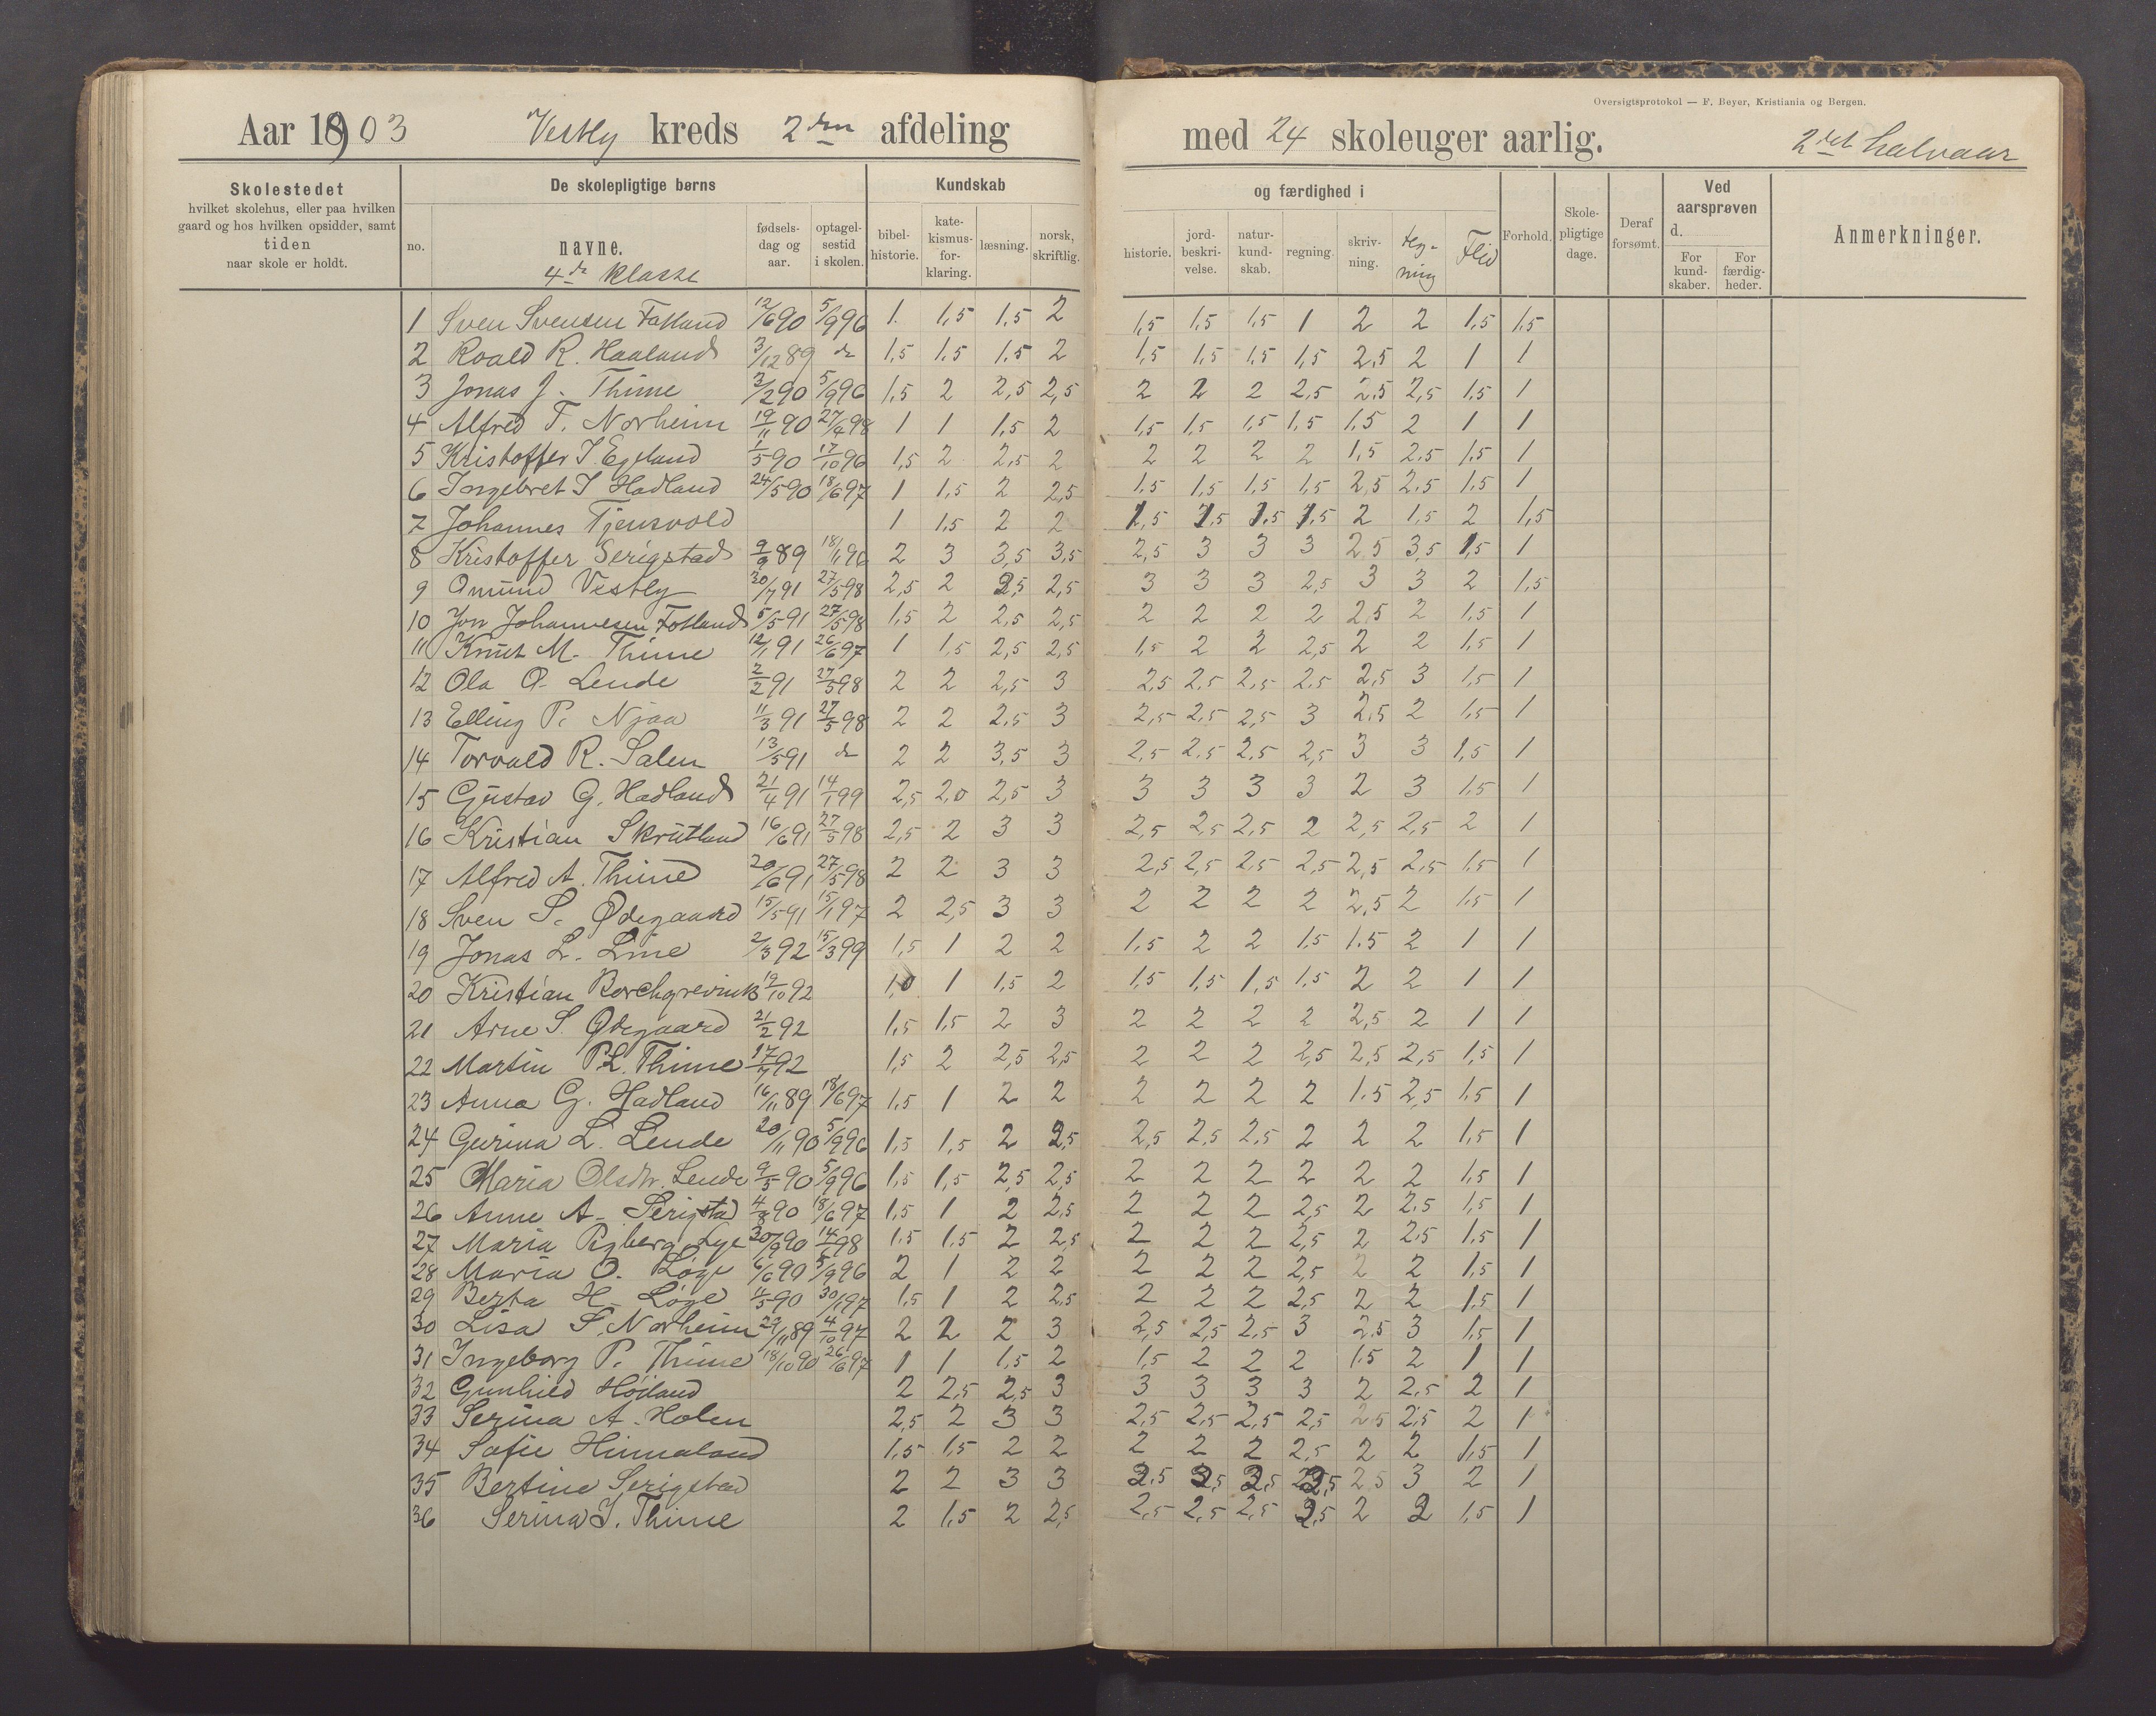 Oversigtsprotokol — F. Beyer, Kristiania og Bergen.
Aar 1903 Vestly kreds 2den afdeling med 24 skoleuger aarlig. 2det halvaar
Skolestedet
hvilket skolehus, eller paa hvilken
gaard og hos hvilken opsidder, samt
tiden
naar skole er holdt.
De skolepligtige børns
no. navne. fødsels-dag og aar. optagel-sestid i skolen.
4de klasse
Kundskab og færdighed i
bibel-historie. kate-kismus-for-klaring. læsning. norsk, skriftlig. historie. jord-beskri-velse. natur-kund-skab. regning. skriv-ning. teg-ning Flid Forhold. Skole-pligtige dage. Deraf forsømt.
Ved aarsprøven d.
For kund-skaber. For færdig-heder.
Anmerkninger.
1 Sven Svensen Fotland 12/6 90 5/9 96 1. 1,5 1,5 2 1,5 1,5 1,5 1 2 2 1,5 1,5
2 Roald R. Haaland 3/12 89 do 1,5 1,5 1,5 2 1,5 1,5 1,5 1,5 2,5 2 1 1
3 Jonas J. Thime 3/2 90 5/9 96 1,5 2 2,5 2,5 2 2 2 2,5 2,5 2,5 1,5 1
4 Alfred T. Norheim 19/11 90 27/4 98 1 1 1,5 2 1,5 1,5 1,5 1,5 1,5 2 1 1
5 Kristoffer I. Egeland 1/5 90 17/10 96 1,5 2 2,5 2 2 2 2 2 1,5 2,5 1,5 1
6 Ingebret I Hadland 24/5 90 18/6 97 1 1,5 2 2,5 1,5 1,5 1,5 1,5 2,5 2,5 1,5 1
7 Johannes Tjensvold 1 1,5 2 2 1,5 1,5 1,5 1,5 2 1,5 2 1,5
8 Kristoffer Serigstad 9/9 89 18/11 96 2 3 3,5 3,5 2,5 3 3 3 2,5 3,5 1,5 1
9 Omund Vestly 30/7 91 27/5 98 2,5 2 2,5 2,5 3 3 3 2,5 3 3 2 1,5
10 Jon Johannesen Fotland 5/5 91 27/5 98 1,5 2 2,5 2,5 2 2 2 2 2,5 2 1,5 1
11 Knut M. Thime 12/1 91 26/6 97 1 1,5 2,5 2,5 1,5 2 2 2,5 2 2 1,5 1
12 Ola O. Lende 2/2 91 27/5 98 2 2 2,5 3 2,5 2,5 2,5 2,5 2,5 3 1,5 1
13 Elling P. Njaa 11/3 91 27/5 98 2 2 2,5 3 2,5 2,5 2,5 3 2,5 2 1,5 1
14 Torvald R. Salen 13/5 91 do 2 2 3,5 3 2,5 2,5 2,5 2,5 3 3 1,5 1
15 Gustav G. Hadland 21/4 91 14/1 99 2,5 2,0 2,5 3 3 3 3 3 2 3 1,5 1
16 Kristian Skrutland 16/6 91 27/5 98 2,5 2 3 3 2,5 2,5 2,5 2 2,5 2,5 2 1
17 Alfred A. Thime 20/6 91 27/5 98 2 2 3 3 2,5 2,5 2,5 2,5 2,5 2,5 1,5 1
18 Sven S. Ødegaard 15/5 91 15/1 97 2 2,5 3 3 2 2 2 2 2,5 2 1,5 1
19 Jonas L. Line 2/3 92 15/3 99 1,5 1 2 2 1,5 2 2 1,5 1,5 2 1 1
20 Kristian Borchgrevink 19/10 92 1,0 1 1,5 2 1,5 1,5 1,5 1,5 2 2 1 1
21 Arne S. Ødegaard 21/2 92 1,5 1,5 2 3 2 2 2 2 2,5 2 1 1
22 Martin P.L. Thime 17/7 92 1,5 2 2,5 2,5 2 2 2 2,5 2,5 2,5 1,5 1
23 Anna G. Hadland 16/11 89 18/6 97 1,5 1 2 2 2 2 2 2 1,5 2,5 1,5 1
24 Gurina L. Lende 20/11 90 5/9 96 1,5 1,5 2 2,5 2,5 2,5 2,5 2 2 2 1,5 1
25 Maria Olsdtr. Lende 9/5 90 5/9 96 1,5 1,5 2,5 2,5 2 2 2 2 2 2 1,5 1
26 Anne A. Serigstad 4/8 90 18/6 97 1,5 1 2 2,5 2 2 2 2,5 2 2,5 1,5 1
27 Maria Rgberg Lye 30/9 90 14/6 98 1,5 1,5 2 2,5 2 2 2 2,5 2 2,5 1,5 1
28 Maria O. Løge 6/6 90 5/9 96 2 1 2 2 2 2 2 2,5 2 2 1,5 1
29 Berta H. Løge 4/5 90 30/1 97 1,5 1 2 2,5 2 2 2 2,5 2 2 1,5 1
30 Lisa S. Norheim 29/11 89 4/10 97 2 2 2 3 2,5 2,5 2,5 3 2,5 3 1,5 1
31 Ingeborg P. Thime 18/10 90 26/6 97 1 1 1,5 2 1,5 2 2 2 1,5 2 1 1
32 Gunhild Höiland 2 2,5 2,5 3 3 3 3 3 2 2,5 2 1
33 Serina A. Holen 2,5 2 3 3 2,5 2,5 2,5 2,5 2,5 2,5 2 1
34 Sofie Hinnaland 1,5 1,5 2 2 2 2 2 2,5 2 2 1,5 1
35 Bertine Serigstad 2 2 3 3 2,5 2,5 2,5 2,5 2,5 3 2 1
36 Serina J. Thime 2 1,5 2 2,5 2,5 2,5 2,5 2,5 2 2 1,5 1